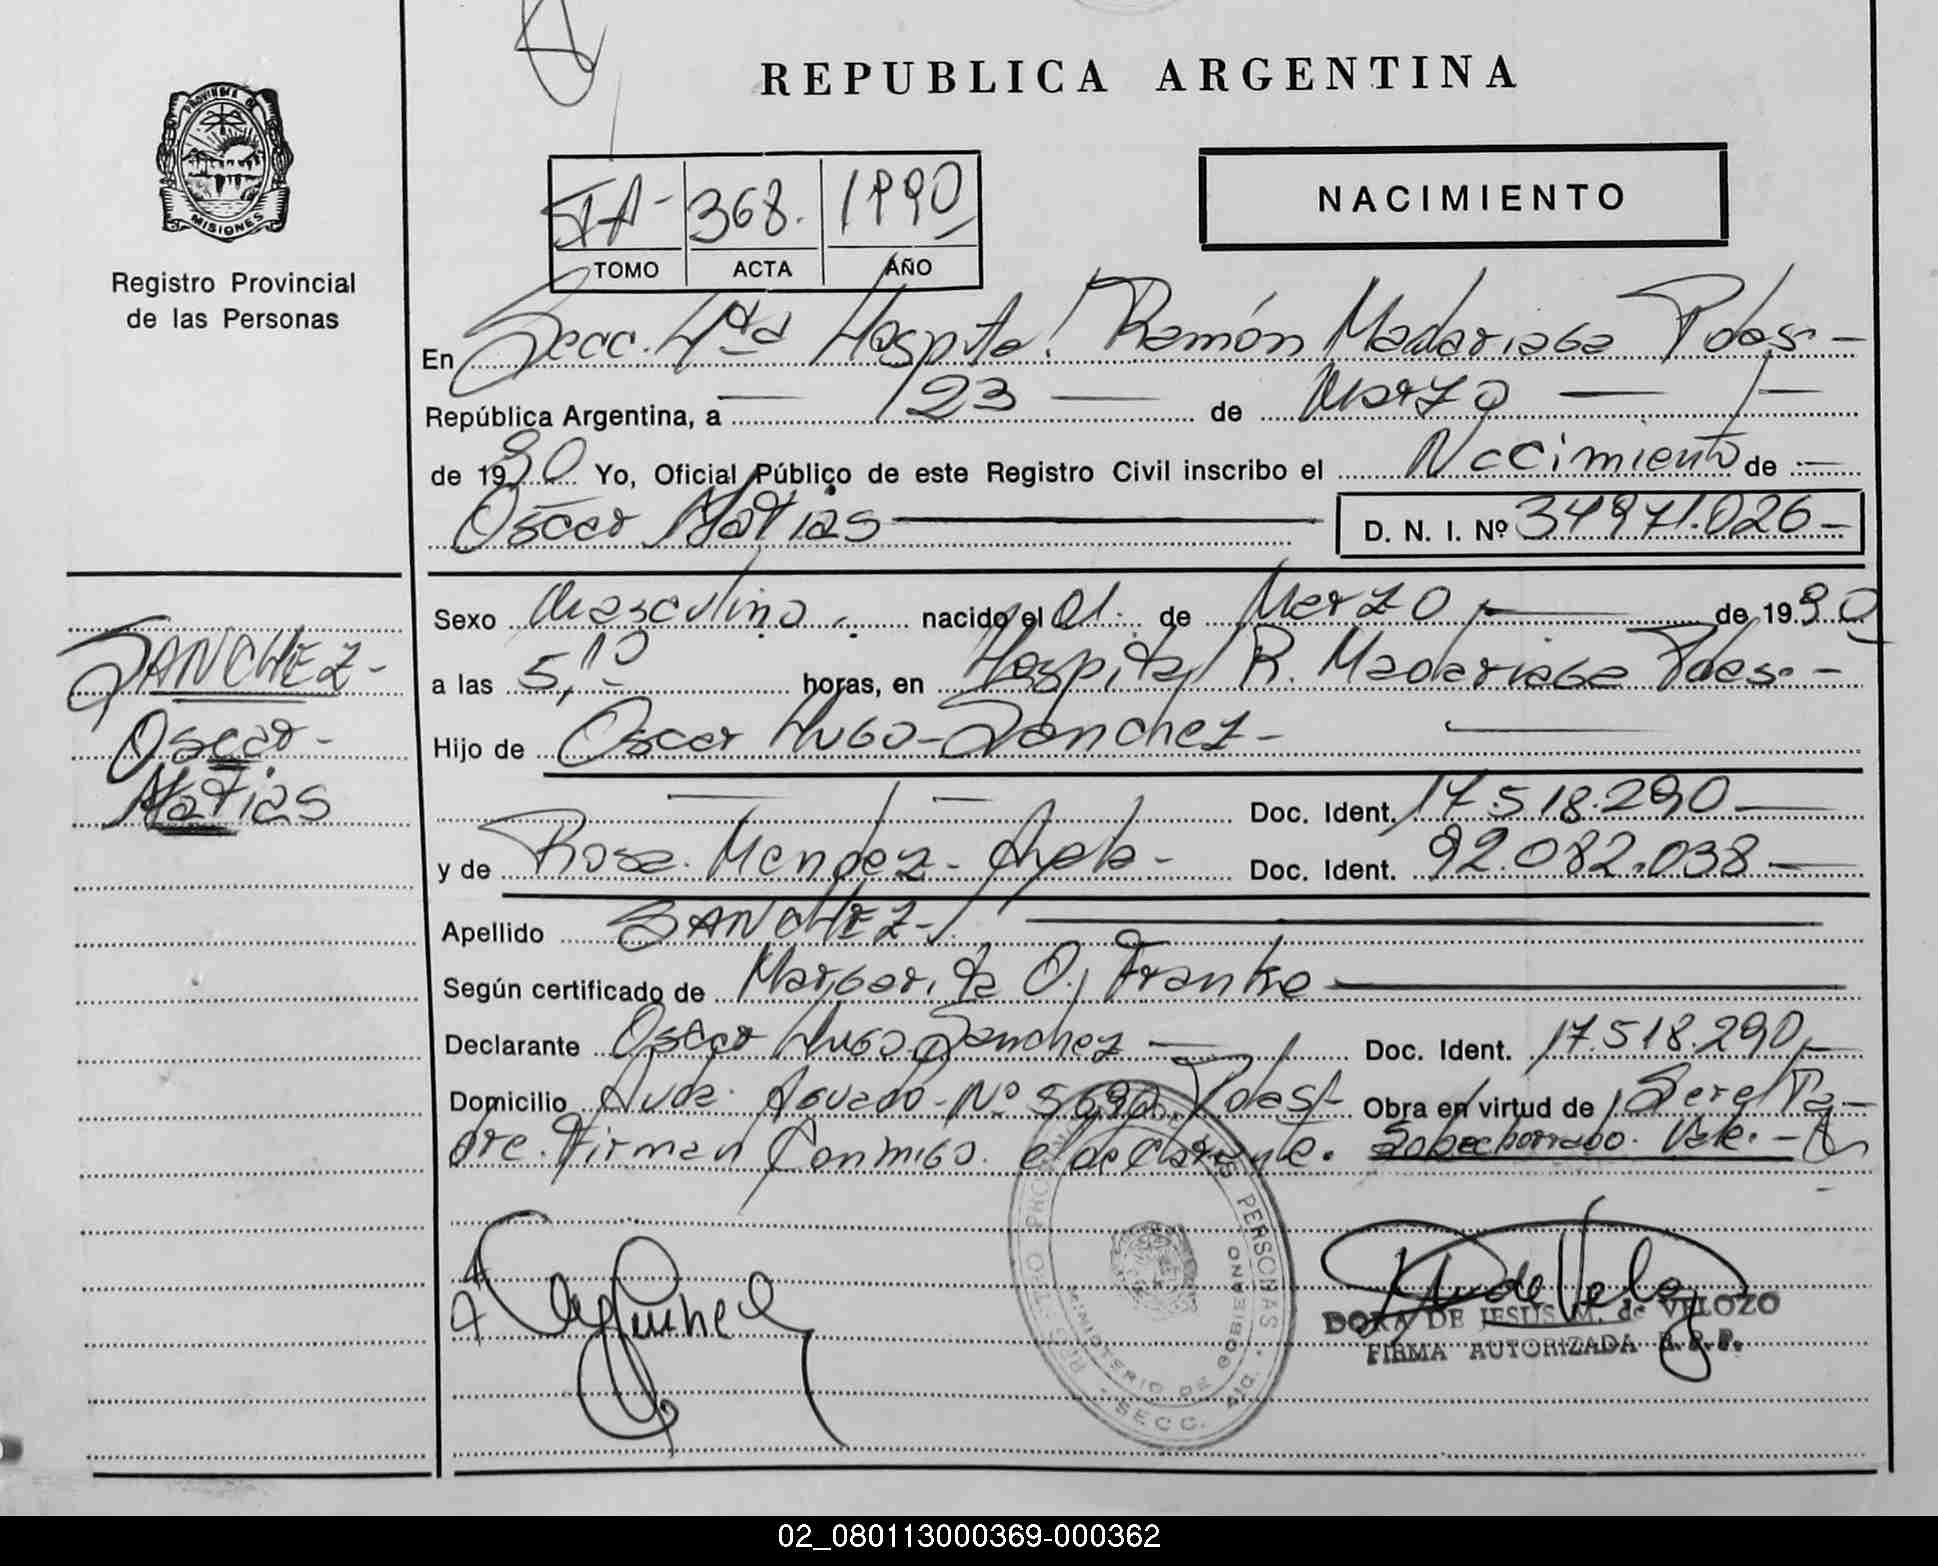 REPUBLICA ARGENTINA
PROVINCIA DE
MISIONES
Registro Provincial
de las Personas
IA- 368. 1990
TOMO ACTA AÑO
NACIMIENTO
En Secc. 4ta Hospital Ramón Madariaga Pdas. -
República Argentina, a 23 de Marzo
de 1990 Yo, Oficial Público de este Registro Civil inscribo el Nacimiento de
Oscar Matias D. N. I. Nº 34971.026 -
Sexo Masculino nacido el 01. de Marzo de 1990
a las 5,10 horas, en Hospital R. Madariaga Pdas. -
Hijo de Oscar Hugo - Sanchez -
Doc. Ident. 17.518.290
y de Rosa Mendez - Ayala - Doc. Ident. 92.082.038
Apellido SANCHEZ -
Según certificado de Margarita O. Franke
Declarante Oscar Hugo Sanchez Doc. Ident. 17.518.290
Domicilio Avda. Aguado - Nº 5690 Pdas. Obra en virtud de Ser el Pa-
dre. Firman Conmigo. el declarante. Sobreborrado. Vale. -
SANCHEZ -
Oscar -
Matias
REGISTRO PROVINCIAL DE LAS PERSONAS
MINISTERIO DE GOBIERNO
SECC. 4ta.
DORA DE JESUS M. de VELOZO
FIRMA AUTORIZADA R.P.P.
02_080113000369-000362